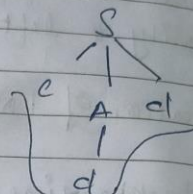 S
c A d
d